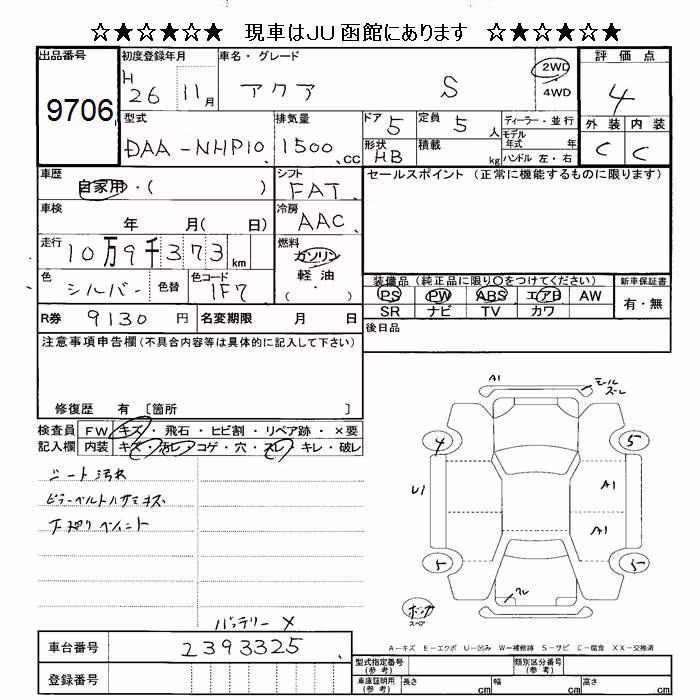 ☆★☆★☆★ 現車はJU函館にあります ☆★☆★☆★
出品番号 初度登録年月 車名・グレード 2WD 評価点
9706 H 26 11月 アクア S 4WD 4
型式 排気量 ドア 5 定員 5人 ディーラー・並行 外装 内装
DAA-NHP10 1500 CC 形状 HB 積載 kg モデル年式 年 C C
ハンドル 左・右
車歴 シフト セールスポイント (正常に機能するものに限ります)
自家用・( ) FAT
車検 年 月( 日) 冷房 AAC
走行 10万9千373km 燃料 ガソリン
軽油
( ・ )
色 シルバー 色替 色コード 1F7
装備品(純正品に限り〇をつけてください) 新車保証書
PS PW ABS エアB AW 有・無
SR ナビ TV カワ
R券 9130 円 名変期限 月 日 後日品
注意事項申告欄(不具合内容等は具体的に記入して下さい)
修復歴 有 〔箇所 〕
検査員 FW キズ・飛石・ヒビ割・リペア跡・×要
記入欄 内装 キズ・汚レ・コゲ・穴・スレ・キレ・破レ
シート汚れ
ピラーベルトハサミキズ
下廻りペイント
バッテリー×
A1
モールズーレ
4 5
U1 A1
A1
5 5
ワレ
ボックス
スペア
A-キズ E-エクボ U-凹み W-補修跡 S-サビ C-腐食 XX-交換済
車台番号 2393325
型式指定番号(参考) 類別区分番号(参考)
登録番号 車庫証明用(参考) 長さ cm 幅 cm 高さ cm